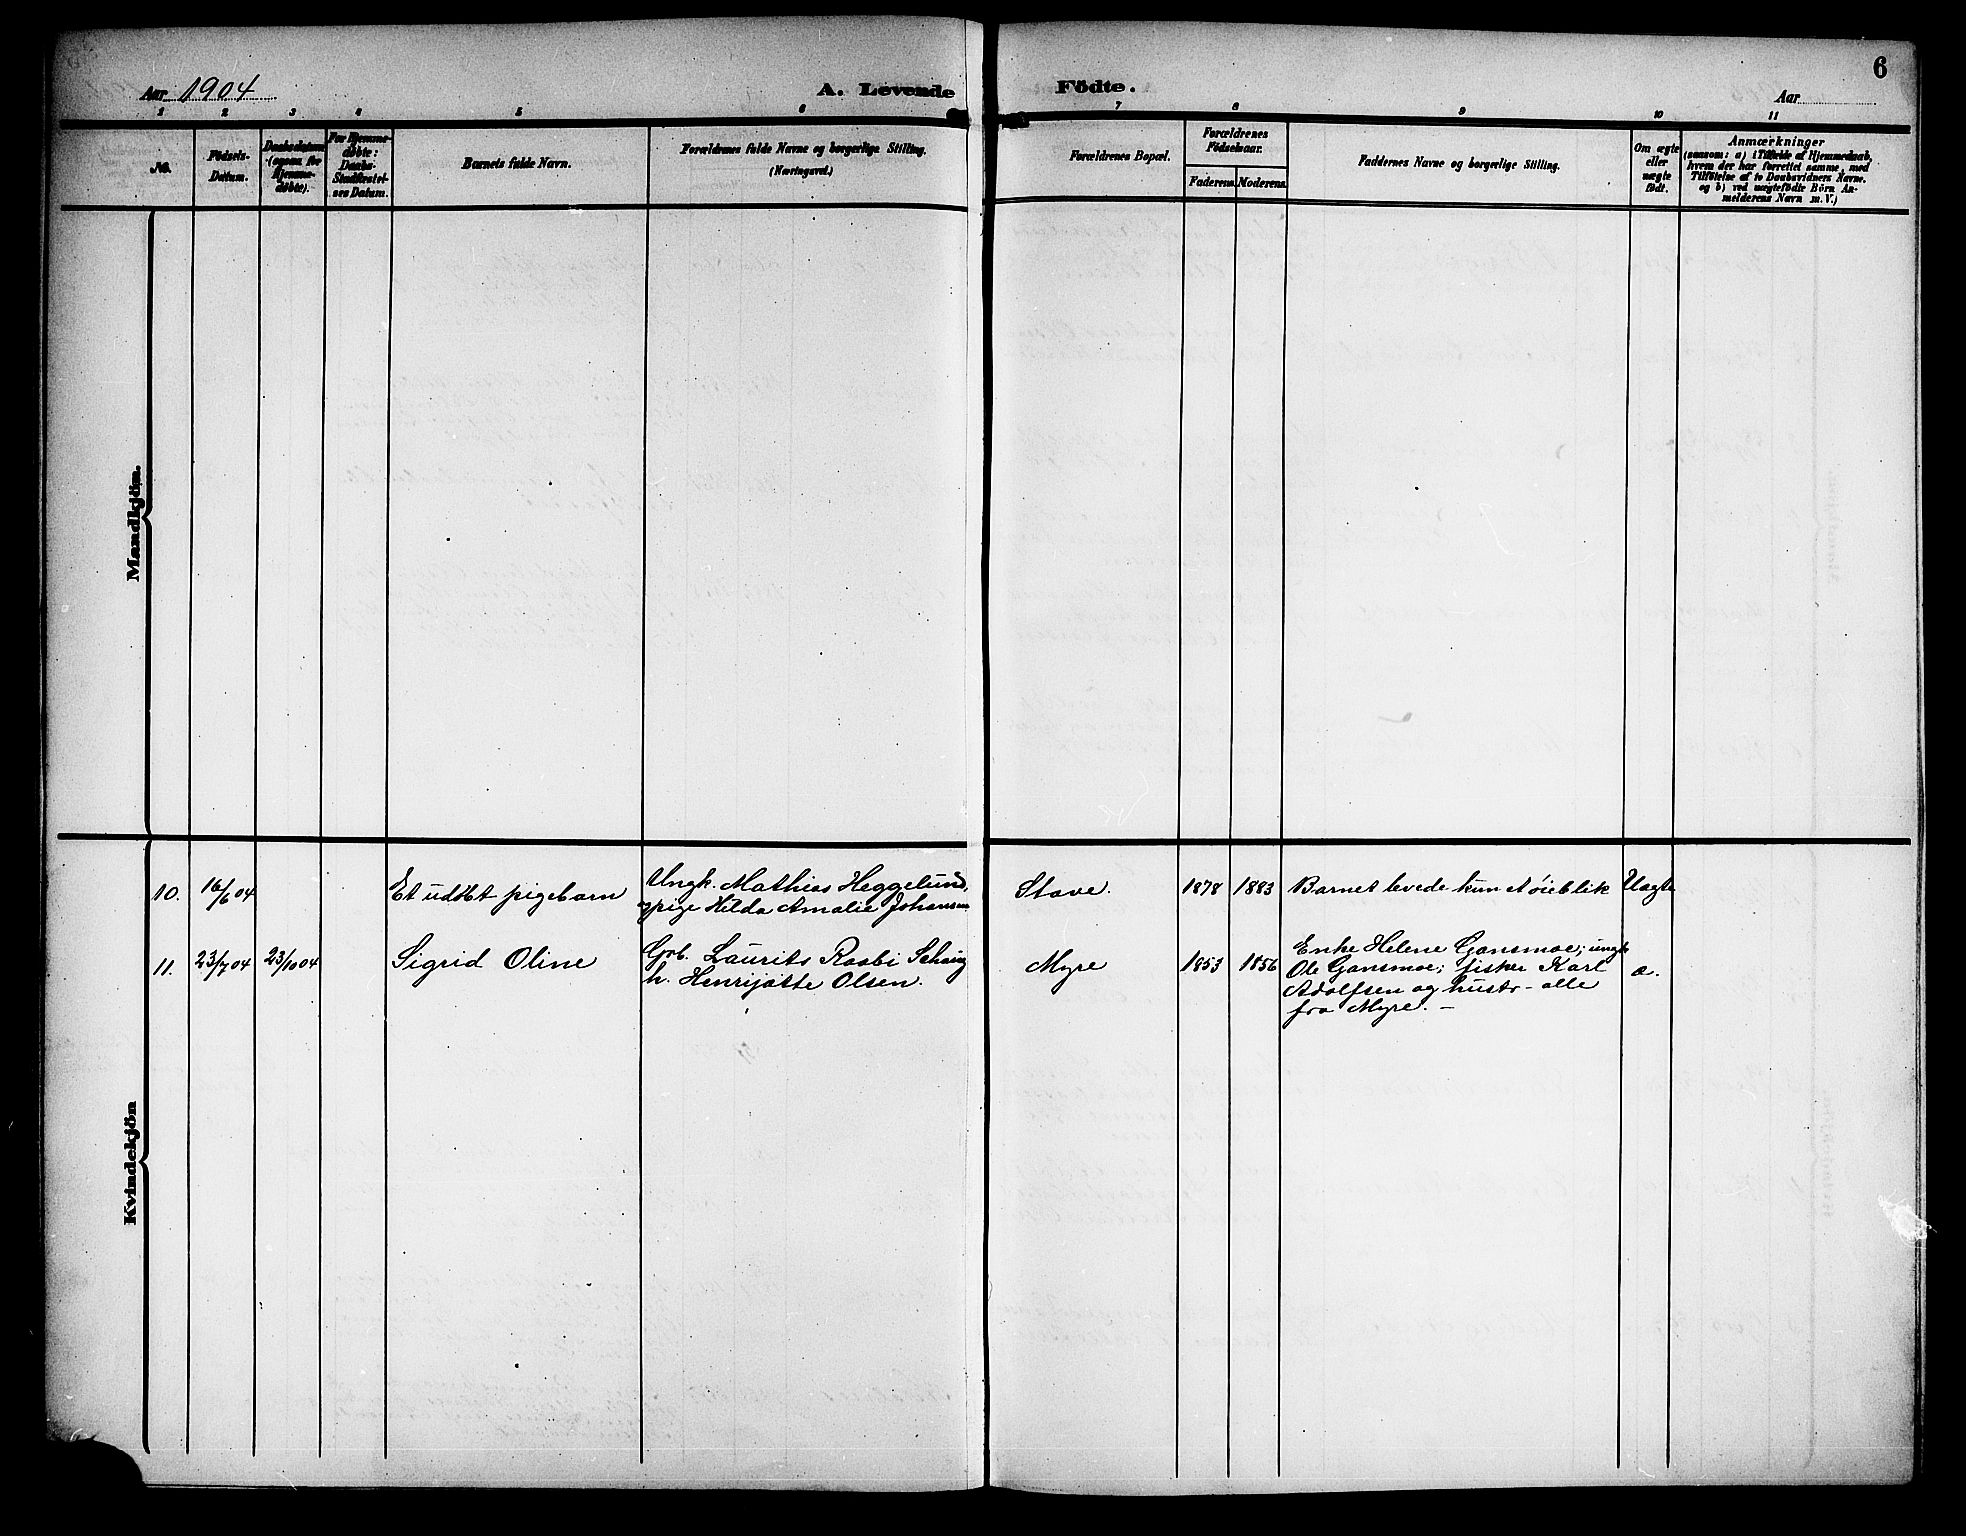 6
Aar 1904
A. Levende Födte.
Aar
1 2 3 4 5 6 7 8 9 10 11
No.
Födsels-
Datum.
Daabsdatum
(ogsaa for
Hjemme-
döbte).
For Hjemme-
döbte:
Daabs-
Stadfæstel-
ses Datum.
Barnets fulde Navn.
Forældrenes fulde Navne og borgerlige Stilling.
(Næringsvei.)
Forældrenes Bopæl.
Forældrenes
Födselsaar.
Faderens. Moderens.
Faddernes Navne og borgerlige Stilling.
Om ægte
eller
uægte
födt.
Anmærkninger
(saasom: a) i Tilfælde af Hjemmedaab,
hvem der har forrettet samme, med
Tilföielse af to Daabsvidners Navne.
og b) ved uægtefödte Börn An-
melderens Navn m. V.)
Mandkjön.
Kvindekjön
10. 16/6 04 Et udöbt pigebarn
Ungk. Mathias Heggelund,
pige Hilda Amalie Johansen
Stave. 1878 1883 Barnet levede kun et öieblik Uægte
11. 23/7 04 23/10 04 Sigrid Oline
Grb. Laurits Rasbi Schaug
h. Henrijøtte Olsen.
Myre 1853 1856
Enke Helene Gansmoe; ungk
Ole Gansmoe; fisker Karl
Adolfsen og hustr - alle
fra Myre. -
æ.